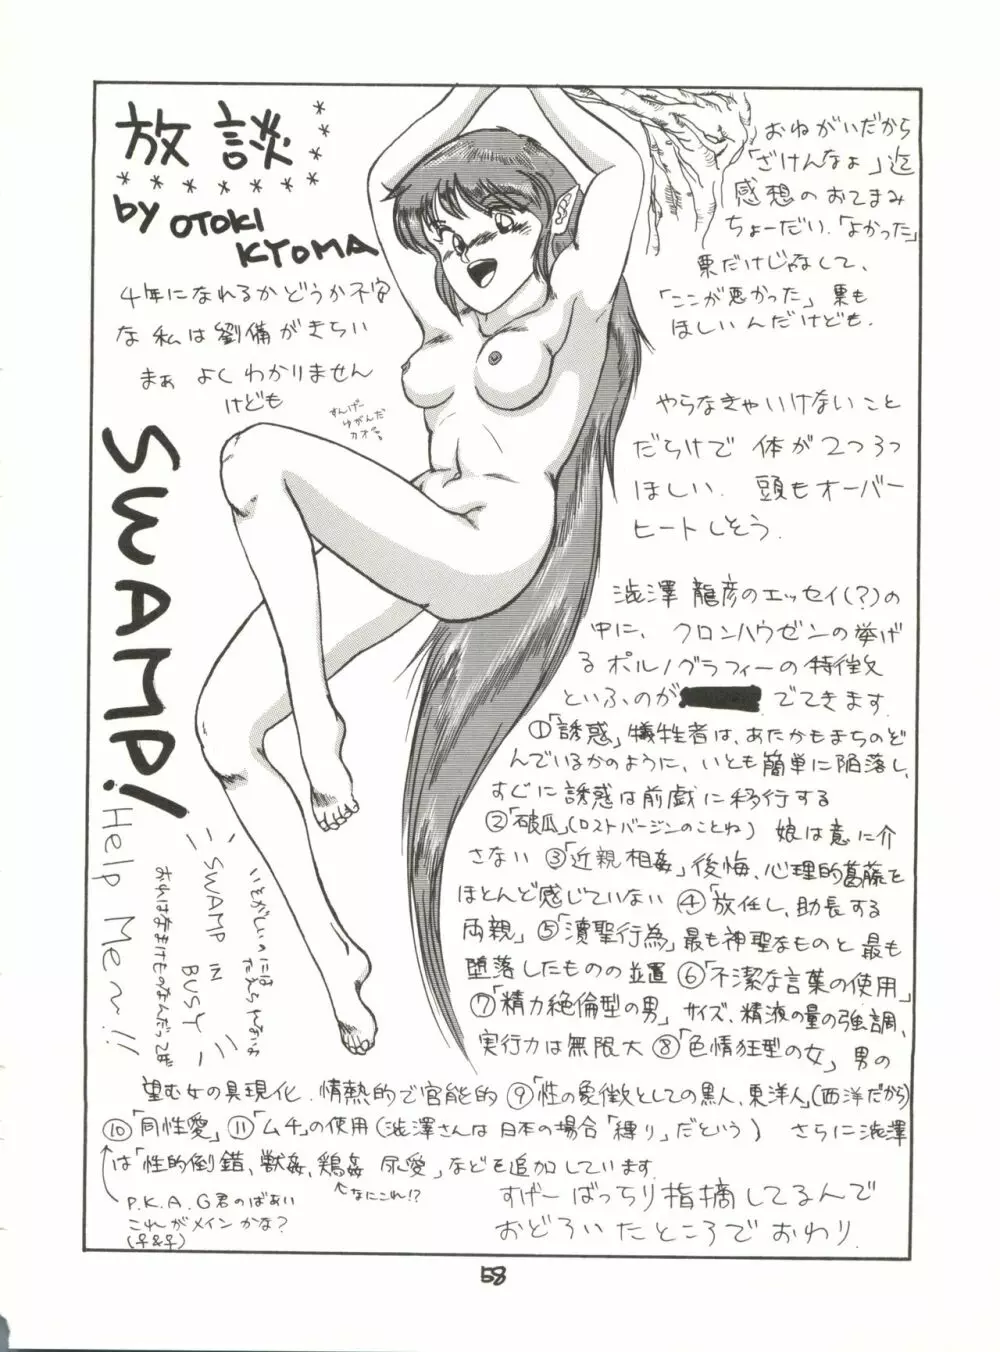 放談
by OTOKI
KYOMA
4年になれるかどうか不安
な私は劉備がきらい
まぁ よくわかりません
けども
すんげー
ゆがんだ
カオ
SWAMP!
Help Me~!!
SWAMP
IN
BUSY
いそがしいのには
たえられないよ
おれはなまけものなんだってば
おねがいだから
「ざけんなよ」迄
感想のおてまみ
ちょーだい.「よかった」
票だけじゃなくして、
「ここが悪かった」票も
ほしいんだけども.
やらなきゃいけないこと
だらけで 体が2つ3つ
ほしい. 頭もオーバー
ヒートしそう.
澁澤龍彦のエッセイ(?)の
中に、クロンハウゼンの挙げ
るポルノグラフィーの特徴
といふのが でてきます.
①「誘惑」犠牲者は、あたかもまちのぞ
んでいるかのように、いとも簡単に陥落し、
すぐに誘惑は前戯に移行する
②「破瓜」(ロストバージンのことね) 娘は意に介
さない ③「近親相姦」後悔、心理的葛藤を
ほとんど感じていない ④「放任し、助長する
両親」⑤「瀆聖行為」最も神聖なものと最も
堕落したものの並置 ⑥「不潔な言葉の使用」
⑦「精力絶倫型の男」サイズ、精液の量の強調、
実行力は無限大 ⑧「色情狂型の女」男の
望む女の具現化. 情熱的で官能的 ⑨「性の象徴としての黒人、東洋人」(西洋だから)
⑩「同性愛」⑪「ムチ」の使用(澁澤さんは日本の場合「縛り」だという) さらに澁澤
は「性的倒錯、獣姦、鶏姦 尿愛」なども追加しています.
なにこれ!?
P.K.A.G君のばあい
これがメインかな?
(♀&♀)
すげーばっちり指摘してるんで
おどろいたところでおわり.
58